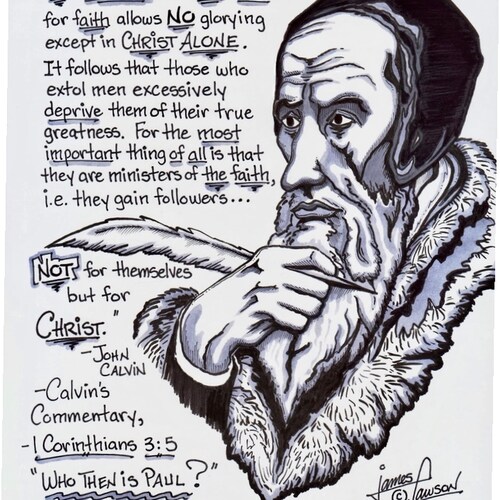 for faith allows NO glorying
except in CHRIST ALONE.
It follows that those who
extol men excessively
deprive them of their true
greatness. For the most
important thing of all is that
they are ministers of the faith,
i.e. they gain followers...
NOT for themselves
but for
CHRIST."
-JOHN
CALVIN
-Calvin's
Commentary,
-1 Corinthians 3:5
"WHO THEN IS PAUL?"
james
© Lawson